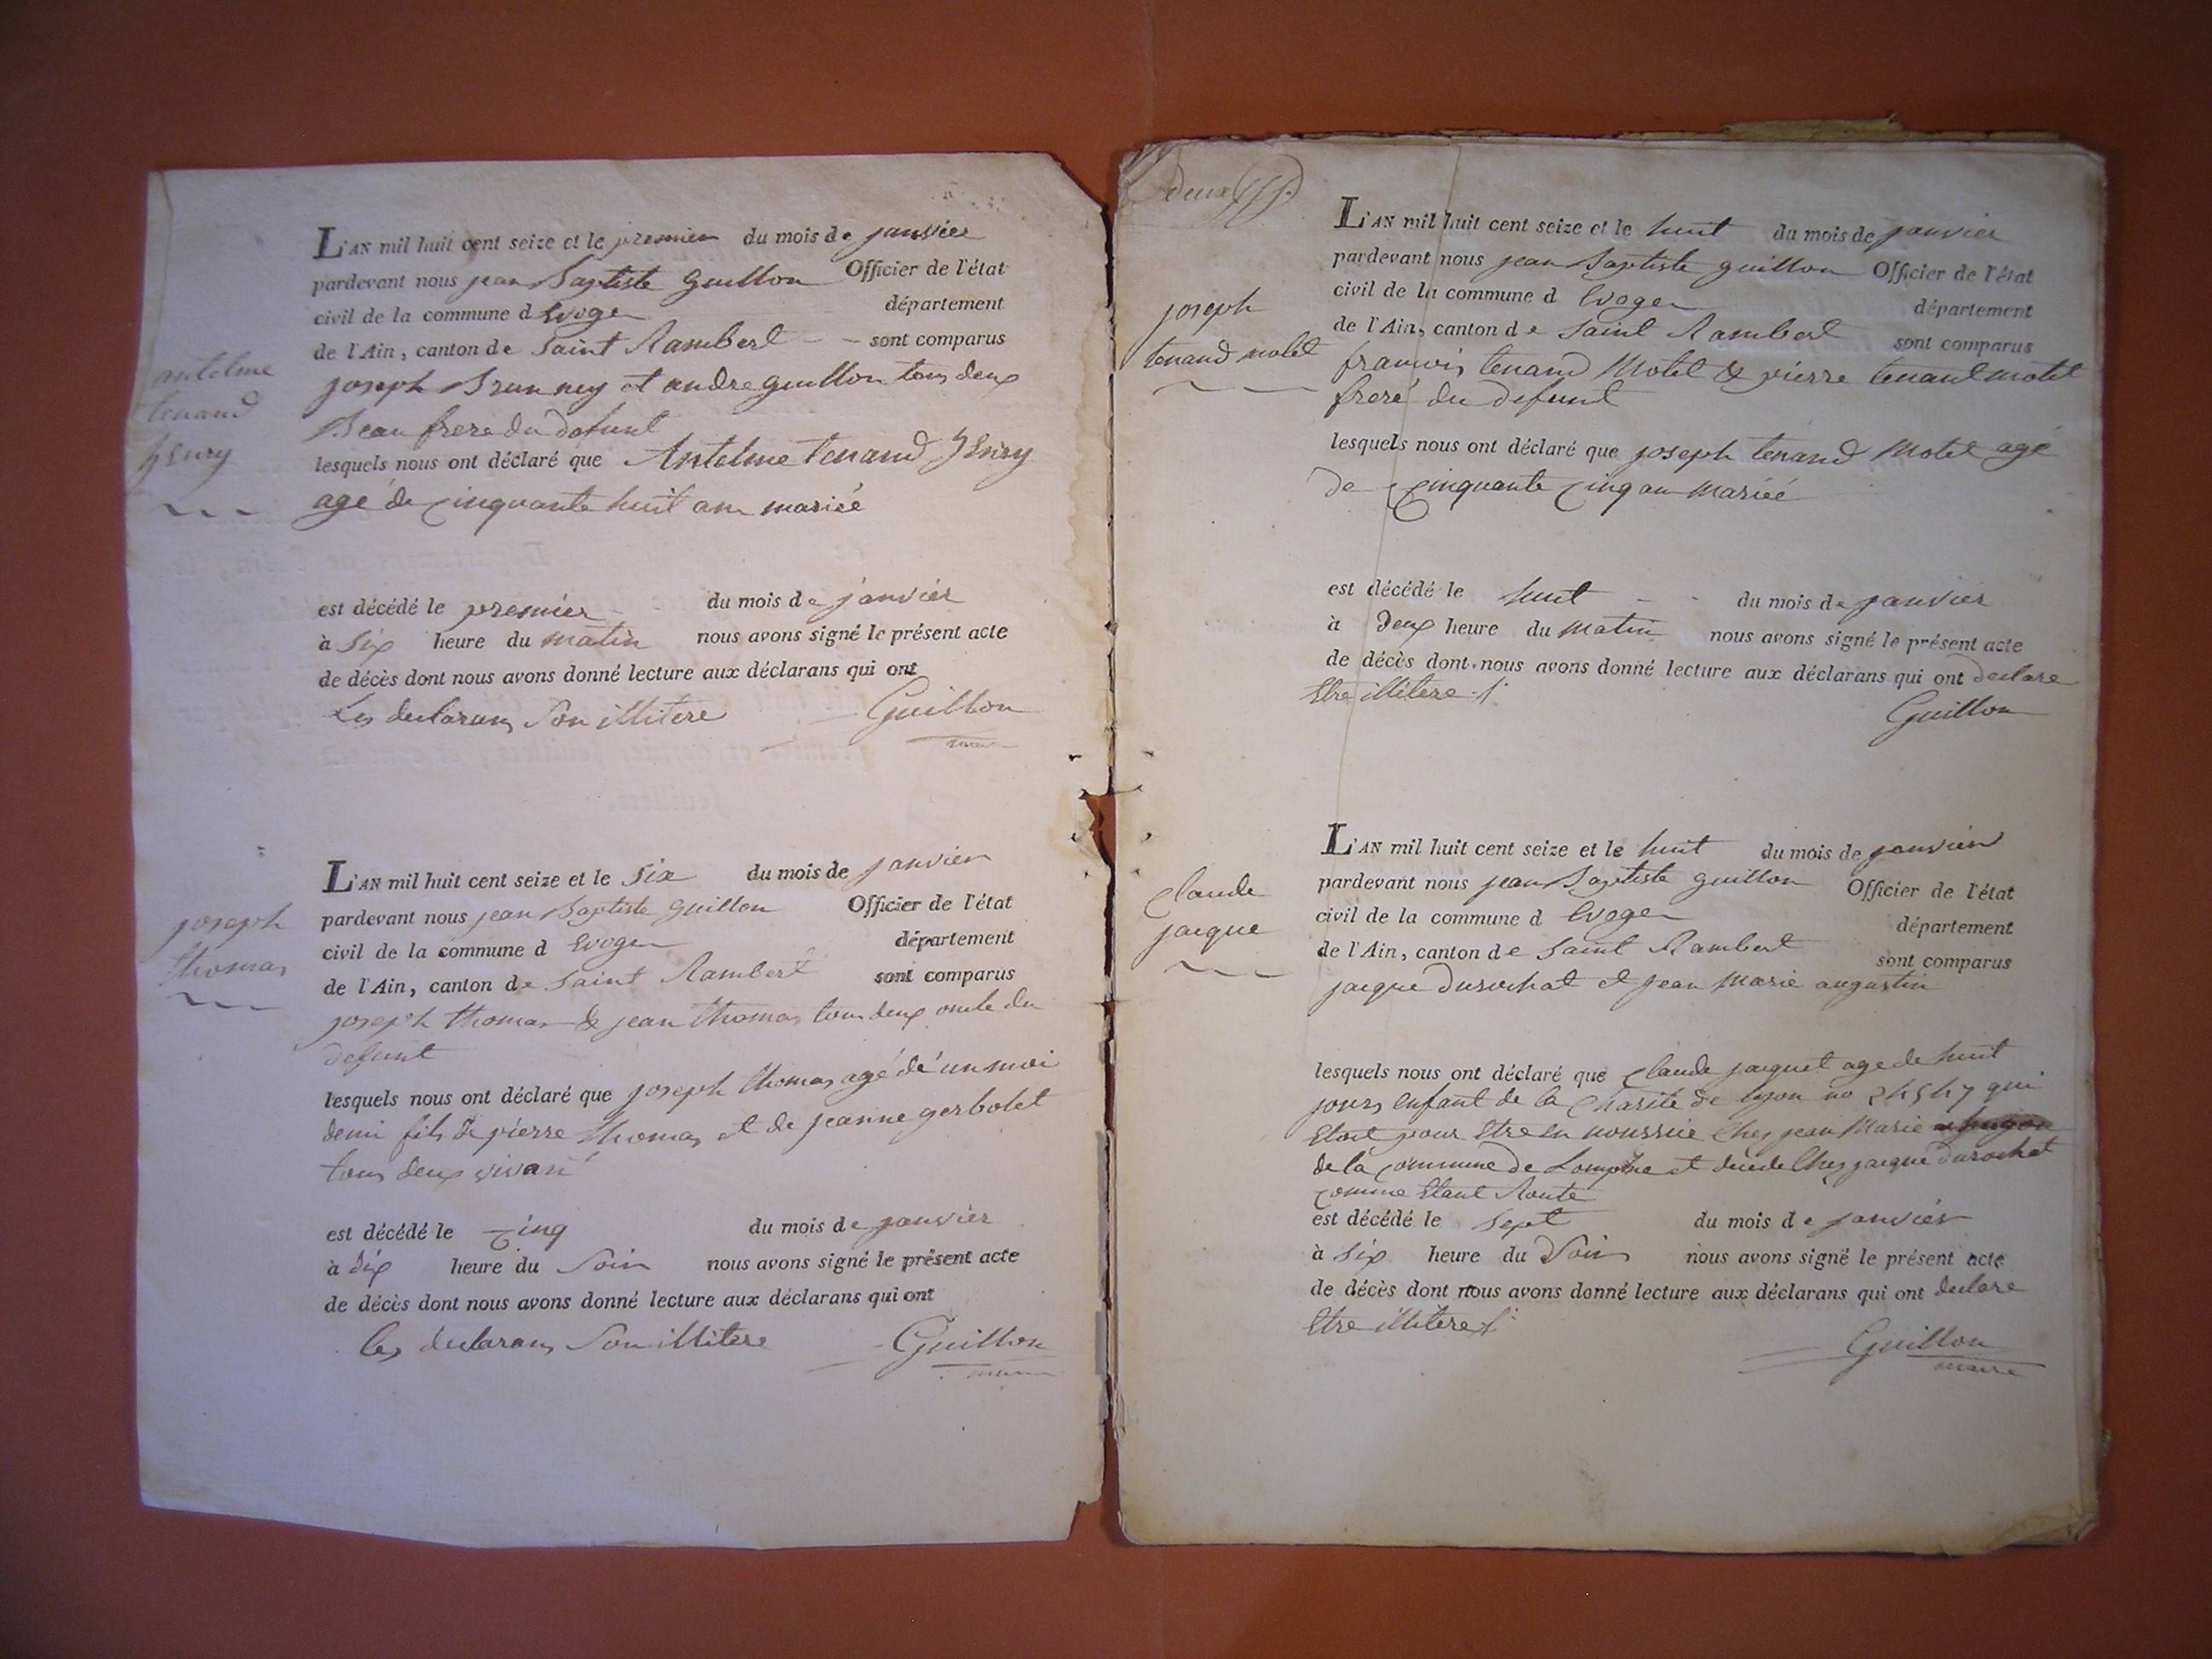 antelme
tenand
henry
L'AN mil huit cent seize et le premier du mois de janvier
pardevant nous jean Baptiste guillon Officier de l'état
civil de la commune d Evoge département
de l'Ain, canton de Saint Rambert sont comparus
joseph Brunney et andre guillon tous deux
Beau frere du defunt
lesquels nous ont déclaré que Antelme tenand henry
agé de cinquante huit an mariée
est décédé le premier du mois de janvier
à six heure du matin nous avons signé le présent acte
de décès dont nous avons donné lecture aux déclarans qui ont
Les declarans Son illitere Guillon
maire
joseph
thomas
L'AN mil huit cent seize et le six du mois de janvier
pardevant nous jean Baptiste guillon Officier de l'état
civil de la commune d Evoge département
de l'Ain, canton de Saint Rambert sont comparus
joseph thomas & jean thomas tous deux oncle du
defunt
lesquels nous ont déclaré que joseph thomas agé dé un moi
demi fils de pierre thomas et de jeanne gerbolet
tous deux vivant
est décédé le cinq du mois de janvier
à dix heure du Soir nous avons signé le présent acte
de décès dont nous avons donné lecture aux déclarans qui ont
les declarans Son illitere Guillon
maire
deux
joseph
tenand molet
L'AN mil huit cent seize et le huit du mois de janvier
pardevant nous jean Baptiste guillon Officier de l'état
civil de la commune d Evoge département
de l'Ain, canton de Saint Rambert sont comparus
francois tenand Motet & pierre tenant motet
freré du defunt
lesquels nous ont déclaré que joseph tenand Motet agé
de cinquante cinq an mariéé
est décédé le huit du mois de janvier
à deux heure du matin nous avons signé le présent acte
de décès dont nous avons donné lecture aux déclarans qui ont declare
Etre illitere
Guillon
Claude
jacque
L'AN mil huit cent seize et le huit du mois de janvier
pardevant nous jean Baptiste guillon Officier de l'état
civil de la commune d Evoge département
de l'Ain, canton de Saint Rambert sont comparus
jacque durochat et jean Marie augustin
lesquels nous ont déclaré que Claude jacquet age de huit
jours enfant de la Charité de lyon no qui
Etoit pour Etre en nourrice Chez jean Marie
de la commune de et décéde Chez jacque durochat
comme Etant Route
est décédé le sept du mois de janvier
à six heure du Soir nous avons signé le présent acte
de décès dont nous avons donné lecture aux déclarans qui ont declare
Etre illitere
Guillon
maire